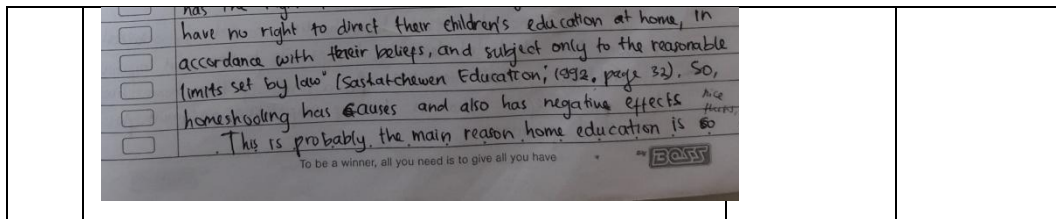 has the
have no right to direct their children's education at home, in
accordance with their beliefs, and subject only to the reasonable
limits set by law" (Sastatchewen Education; 1992, page 32). So,
homeshooling has causes and also has negative effects
This is probably. the main reason home education is so
To be a winner, all you need is to give all you have
BOSS